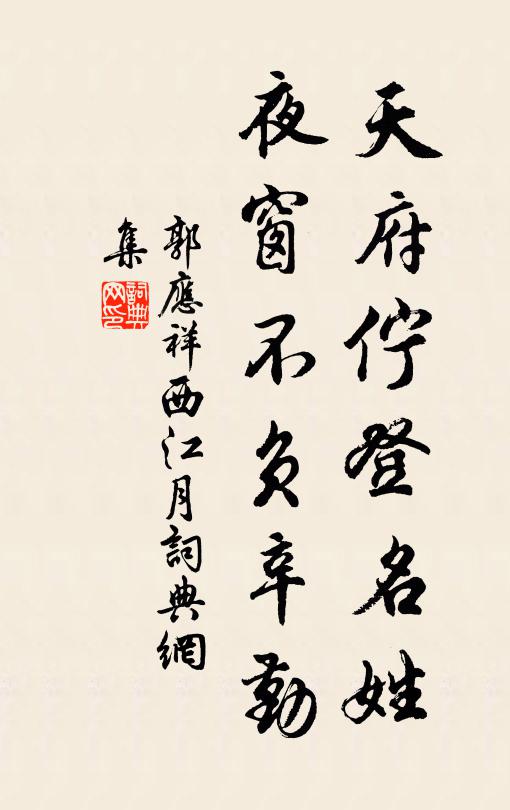 天府佇登名姓
夜窗不負辛勤
郭應祥西江月詞典網
集
詞典網印